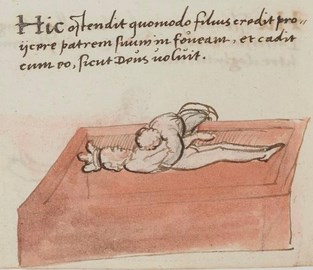 Hic oſtendit quomodo filius credit pro-
ijcere patrem ſuum in foveam, et cadit
cum eo, ſicut Deus voluit.